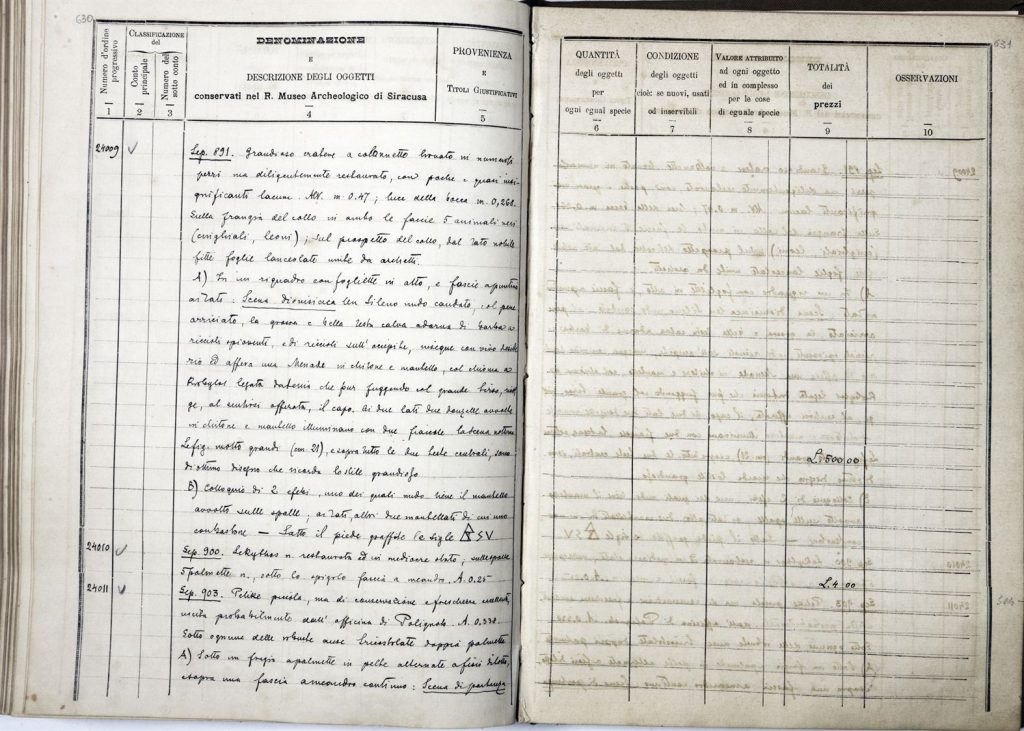 630
Numero d'ordine progressivo
CLASSIFICAZIONE del
Conto principale
Numero del sotto conto
DENOMINAZIONE
E
DESCRIZIONE DEGLI OGGETTI
conservati nel R. Museo Archeologico di Siracusa
PROVENIENZA
E
TITOLI GIUSTIFICATIVI
1 2 3 4 5
24009 Sep. 891. Grandioso cratere a colonnette trovato in numerosi
pezzi ma diligentemente restaurato, con poche e quasi insi-
gnificanti lacune. Alt. m. 0.47; luce della bocca m. 0,268.
Sulla frangia del collo in ambo le faccie 5 animali neri
(cinghiali, leoni); sul prospetto del collo, dal lato nobile
fitte foglie lanceolate unite da archetti.
A) In un riquadro con fogliette in alto, e fascie a puntini
ai lati: Scena dionisiaca Un Sileno nudo caudato, col pene
arricciato, la grossa e bella testa calva adorna di barba a
riccioli spioventi, e di riccioli sull' occipite, insegue con viso
ed afferra una Menade in chitone e mantello, col chioma a
Krobylos legata che pur fuggendo col grande tirso,
ge, al sentirsi afferrata, il capo. Ai due lati due donzelle avvolte
in chitone e mantello illuminano con due fiaccole la scena notturna
Le fig. molto grandi (cm 21), e sopratutto le due teste centrali, sono
di ottimo disegno che ricorda lo stile grandioso.
B) Colloquio di 2 efebi, uno dei quali nudo tiene il mantello
avvolto sulle spalle; ai lati, altri due mantellati di cui uno
con bastone — Sotto il piede graffite le sigle
24010 Sep. 900. Lekythos n. restaurata ed in mediocre stato, sulle spalle
5 palmette n., sotto lo spigolo fascia a meandro. A. 0.25
24011 Sep. 903. Pelike piccola, ma di conservazione e freschezza
uscita probabilmente dall' officina di Polignoto. A. 0.338.
Sotto ognuna delle robuste anse tricostolate doppia palmetta
A) Sotto un fregio a palmette in pelte alternate a fiori di loto,
e sopra una fascia a meandro continuo: Scena di partenza
631
QUANTITÀ
degli oggetti
per
ogni egual specie
CONDIZIONE
degli oggetti
cioè: se nuovi, usati
od inservibili
VALORE ATTRIBUITO
ad ogni oggetto
ed in complesso
per le cose
di eguale specie
TOTALITÀ
dei
prezzi
OSSERVAZIONI
6 7 8 9 10
L. 1500 00
L. 4 00